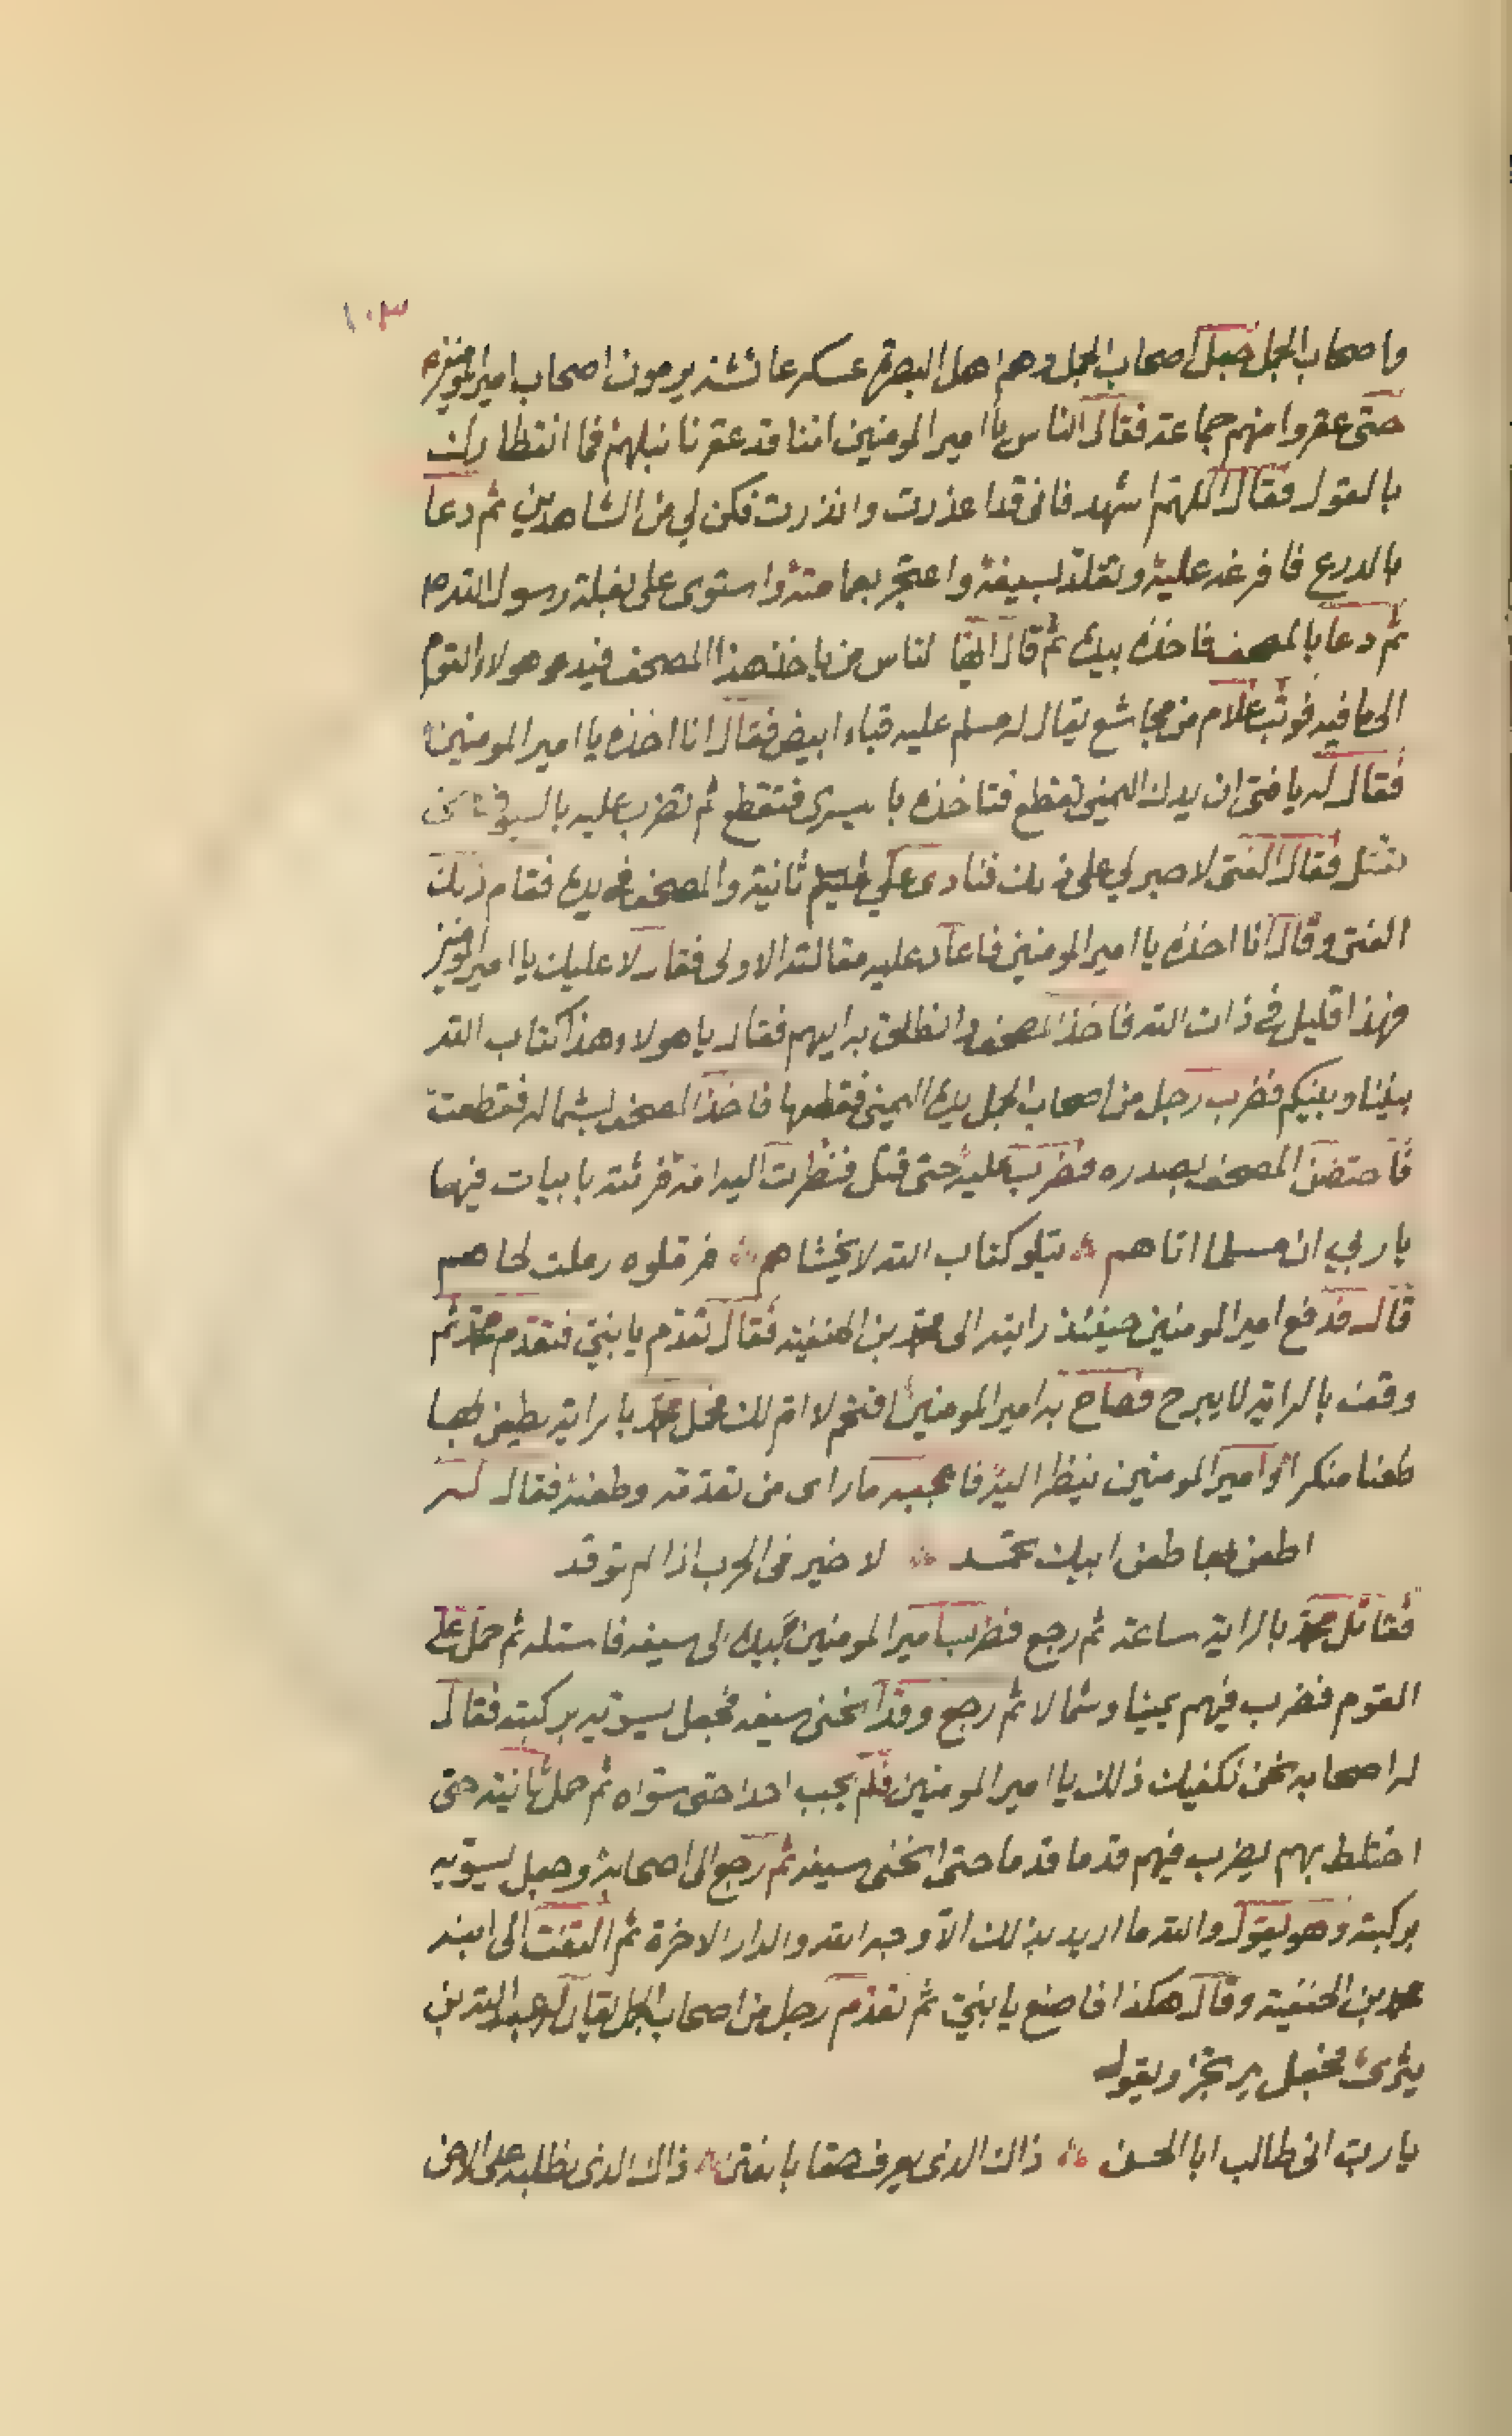 ١٠٣
واصحاب الجمل فجعل اصحاب الجمل وهم اهل البصرة عسكر عائشة يرمون اصحاب امير المومنين
حتى عقروا منهم جماعة فقال الناس يا امير المومنين اننا قد عقرنا نبلهم فما انتظارك
بالقول فقال اللهم اشهد فاني قد اعذرت وانذرت فكن لي من الشاهدين ثم دعا
بالدرع فافرغه عليه وتقلد بسيفه واعتجر بعمامته واستوى على بغلة رسول الله ص
ثم دعا بالمصحف فاخذه بيده ثم قال ايها لناس من ياخذ هذا المصحف فيدعو هولاء القوم
الى ما فيه فوثب غلام من مجاشع يقال له مسلم عليه قباء ابيض فقال انا اخذه يا امير المومنين
فقال له يا فتى ان يدك اليمنى تقطع فتاخذه باليسرى فتقطع ثم تضرب عليه بالسيوف حتى
تقتل فقال الفتى لا صبر لي على ذلك فنادى علي ثانية والمصحف في يده فقام ذلك
الفتى وقال انا اخذه يا امير المومنين فاعاد عليه مقالته الاولى فقال لا عليك يا امير المومنين
فهذا قليل في ذات الله فاخذ المصحف وانطلق به اليهم فقال يا هولاء هذا كتاب الله
بيننا وبينكم فضرب رجل من اصحاب الجمل يده اليمنى فقطعها فاخذ المصحف بشماله فقطعت
فاحتضن المصحف بصدره فضرب عليه حتى قتل فنظرت اليه امه فرثته بابيات فيها
يا ربي ان مسلما اتاهم ۞ يتلو كتاب الله لا يخشاهم ۞ فرملوه رملت لحاهم
قال فدفع امير المومنين حينئذ رايته الى محمد بن الحنفيه فقال تقدم يا بني فتقدم محمد ثم
وقف بالراية لا يبرح فصاح به امير المومنين اقتحم لا ام لك فحمل محمد بالراية يطعن بها
طعنا منكرا وامير المومنين ينظر اليه فاعجبه ما راى من تقدمه وطعنه فقال له
اطعن بها طعن ابيك تحمد ۞ لا خير في الحرب اذا لم توقد
فقاتل محمد بالراية ساعة ثم رجع فضرب امير المومنين بيده الى سيفه فاستله ثم حمل على
القوم فضرب فيهم يمينا وشمالا ثم رجع وقد انحنى سيفه فجعل يسويه بركبته فقال
له اصحابه نحن نكفيك ذلك يا امير المومنين فلم يجب احدا حتى سواه ثم حمل ثانية حتى
اختلط بهم يضرب فيهم قدما قدما حتى انحنى سيفه ثم رجع الى اصحابه وجعل يسويه
بركبته وهو يقول والله ما اريد بذلك الا وجه الله والدار الاخرة ثم التفت الى ابنه
محمد بن الحنفية وقال هكذا فاصنع يا بني ثم تقدم رجل من اصحاب الجمل يقال له عبد الله بن
يثرى فجعل يرتجز ويقول
يا رب اني طالب ابا الحسن ۞ ذاك الذي يعرف حقا بالفتن ۞ ذاك الذي نطلبه على الاحن